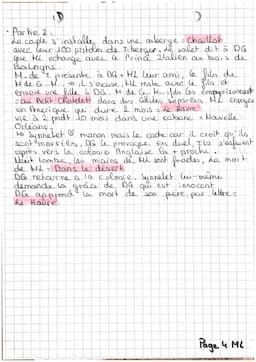 Partie 2 :
Le couple s'installe, dans une auberge = Chaillot
avec leur 100 pistoles de Tiberge. Le valet dit à DG
que ML échange avec le Prince Italien au bois de
Boulogne.
M. de T présente à DG + ML leur ami, le fils de
M de G... M. il s'excuse, ML reste avec le fils et
envoie une fille à DG. M de G... M fils les emprisonnent
au Petit Châtelet dans des cellules séparées. ML envoyée
en Amérique qui dure 2 mois = Le Havre
vie à 2 pdt 10 mois dans une cabane = Nouvelle
Orléans.
Synnelet manon mais le cache car il croit qu'ils
sont mariés, DG le provoque en duel, Ils s'enfuient
après vers la colonie Anglaise la + proche.
Nuit tombe, les mains de ML sont froides, La mort
de ML = Dans le désert
DG retourne à la colonie. Synnelet lui-même
demande la grâce de DG qui est innocent.
DG apprend la mort de son père par lettre =
Le Havre.
Page 4 ML